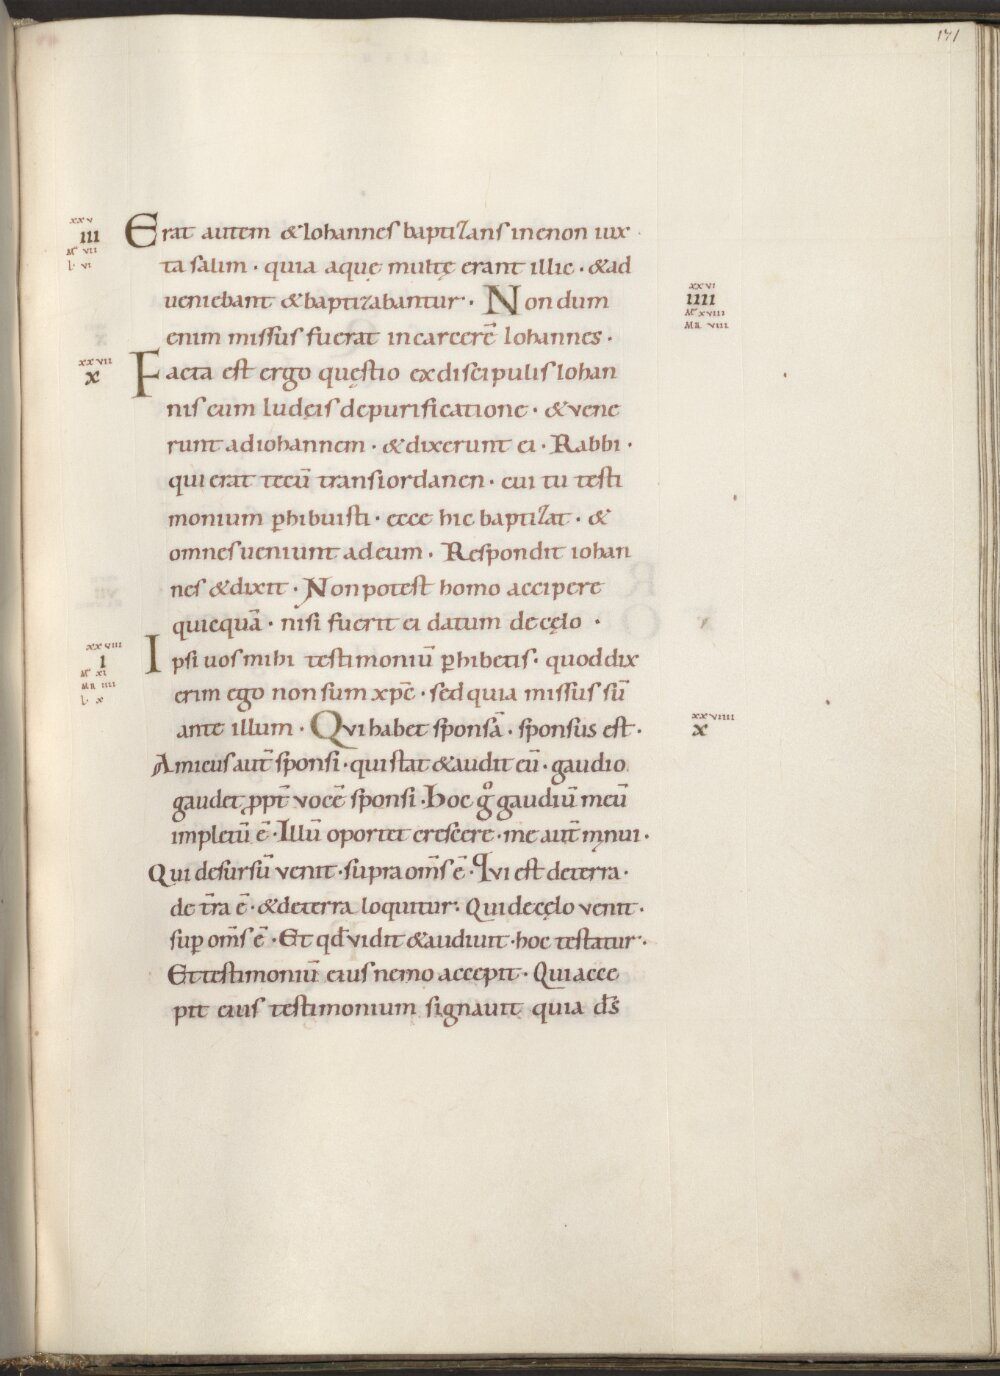 171
xxv
III
Mt VII
L VI
Erat autem & Iohannes baptizans in enon iux
ta salim · quia aquę multę erant illic · & ad
ueniebant & baptizabantur · Nondum
xxvI
IIII
Mt xvIII
MR vIII
enim missus fuerat in carcerē Iohannes ·
xxvII
x
Facta est ergo quęstio ex discipulis Iohan
nis cum Iudęis de purificatione · & vene
runt ad iohannem · & dixerunt ei · Rabbi ·
qui erat tecū trans iordanen · cui tu testi
monium ꝑhibuisti · ecce hic baptizat · &
omnes ueniunt ad eum · Respondit iohan
nes & dixit · Non potest homo accipere
quicquā · nisi fuerit ei datum de cęlo ·
xxvIII
I
Mt xI
MR IIII
L x
Ipsi uos mihi testimoniū ꝑhibetis · quod dix
erim ego non sum xp̄c · sed quia missus sū
ante illum · Qvi habet sponsā · sponsus est ·
xxvIIII
x
Amicus aut̄ sponsi · qui stat & audit eū · gaudio
gaudet ꝓpt̄ vocē sponsi · Hoc gͦ gaudiū meū
impletū ē · Illū oportet crescere · me aut̄ mįnui ·
Qui desursū venit · supra om̄s ē · Qvi est de terra ·
de t̄ra ē · & de terra loquitur · Qui de cęlo venit ·
suꝑ om̄s ē · Et qđ vidit & audiuit · hoc testatur ·
Et testimoniū eius nemo accepit · Qui acce
pit eius testimonium signauit quia d̄s